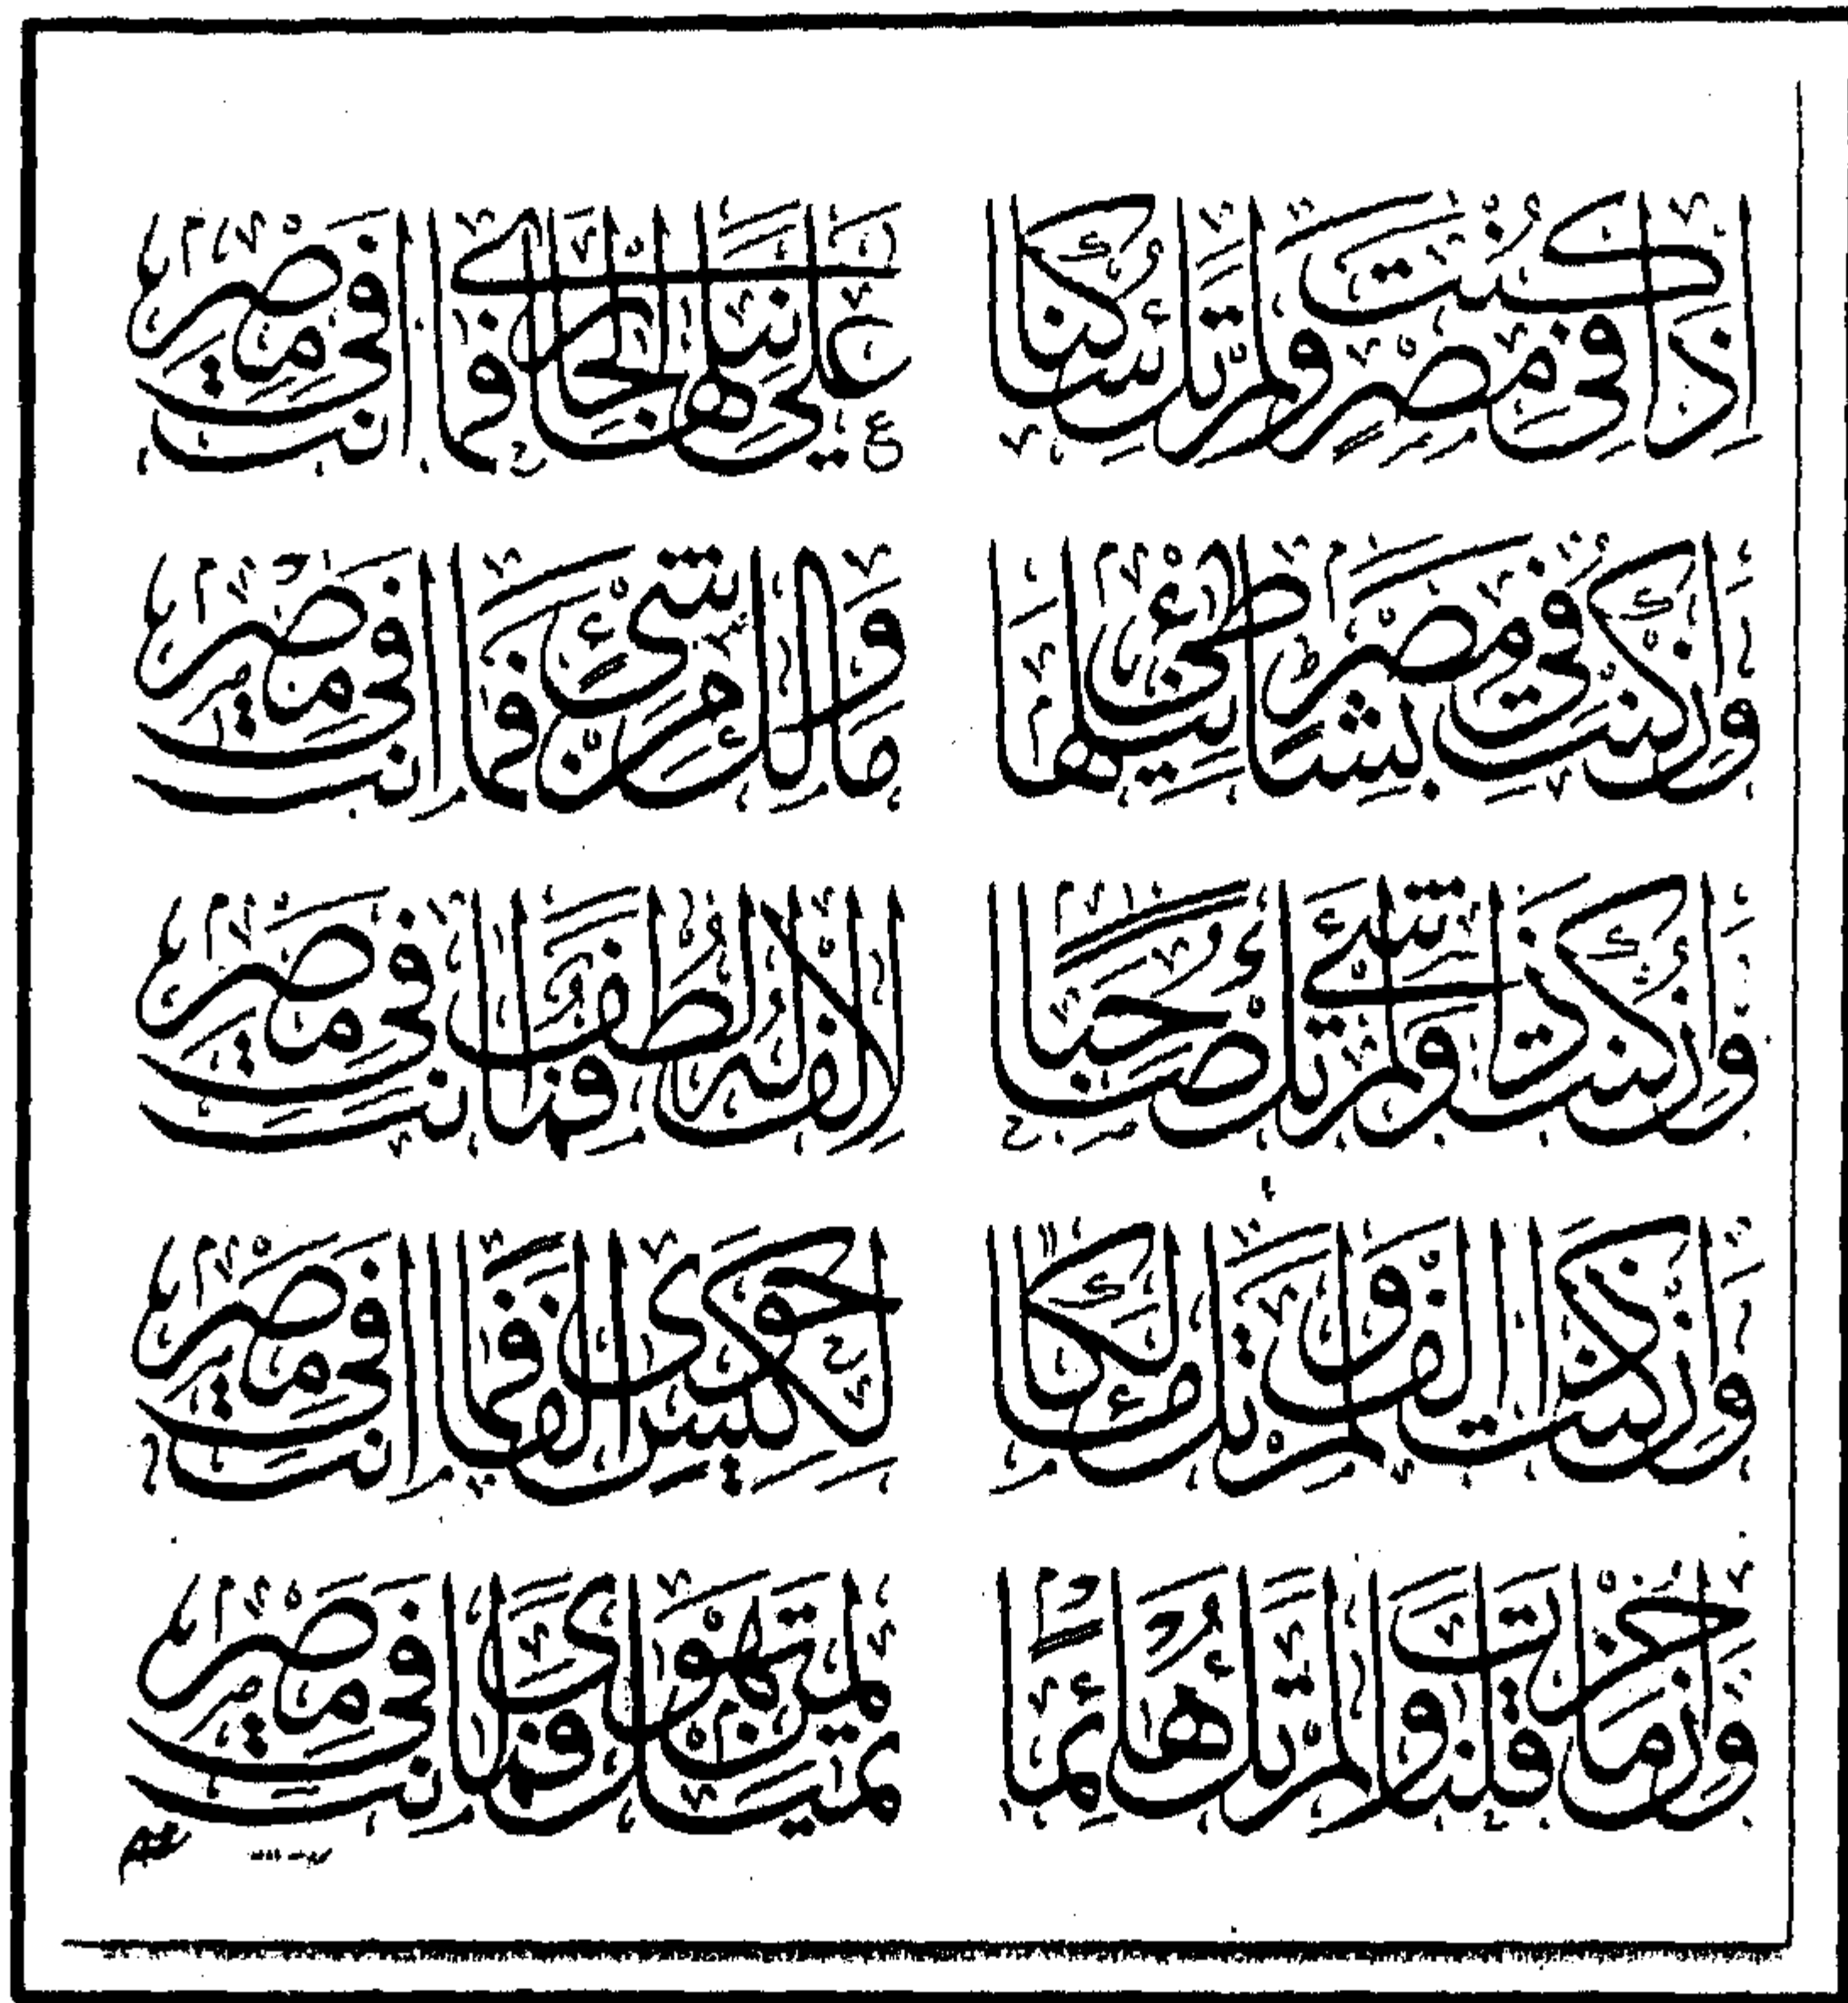 إِذَا كُنْتَ فِي مِصْرٍ وَلَمْ تَكُ سَاكِنًا عَلَى نِيلِهَا الْجَارِي فَمَا أَنْتَ فِي مِصْرِ
وَإِنْ كُنْتَ فِي مِصْرٍ بِشَاطِئِ نِيلِهَا وَمَا لَكَ مِنْ شَيْءٍ فَمَا أَنْتَ فِي مِصْرِ
وَإِنْ كُنْتَ ذَا شَيْءٍ وَلَمْ تَكُ صَاحِبًا لِإِلْفٍ لَهُ لُطْفٌ فَمَا أَنْتَ فِي مِصْرِ
وَإِنْ كُنْتَ ذَا إِلْفٍ وَلَمْ تَكُ مَالِكًا لِكِيسٍ حَوَى أَلْفًا فَمَا أَنْتَ فِي مِصْرِ
وَإِنْ حُزْتَ مَا قُلْنَا وَلَمْ تَكُ هَائِمًا لِمَنْ تَهْوَى فَمَا أَنْتَ فِي مِصْرِ